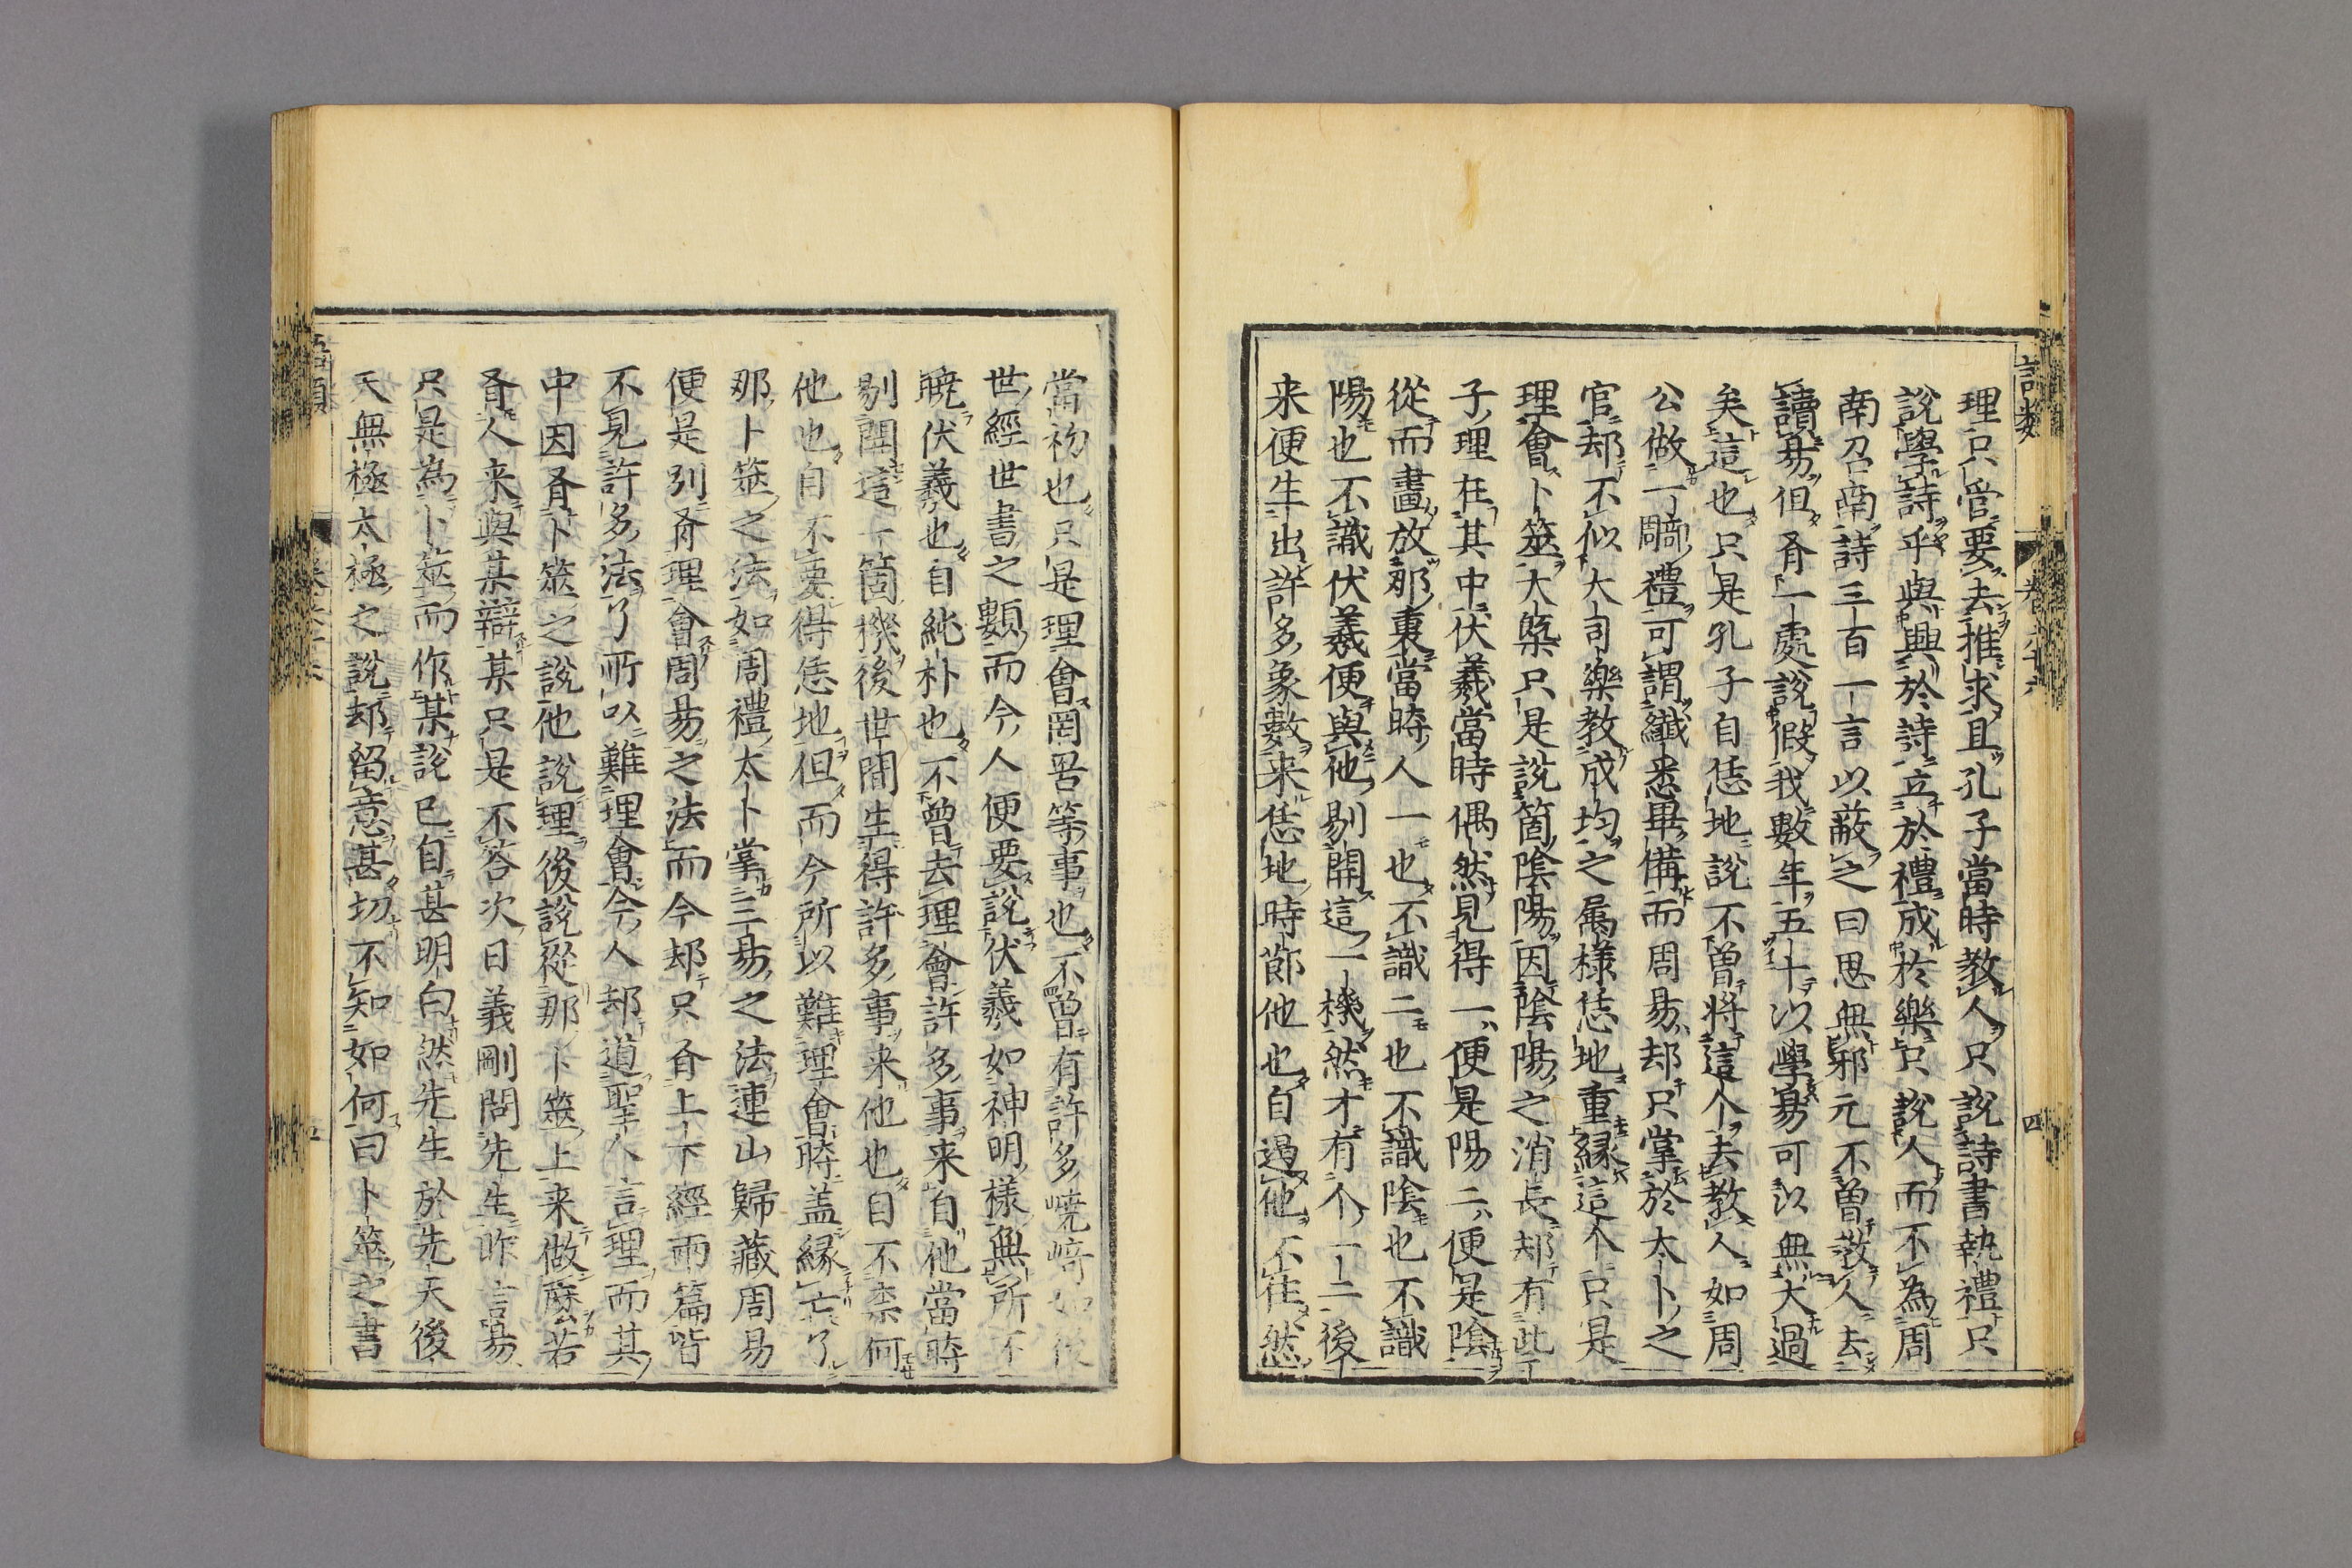 理只管要去推求且孔子當時教人只説詩書執禮只
説學詩乎與興於詩立於禮成於樂只説人而不為周
南召南詩三百一言以蔽之曰思無邪元不曽教人去
讀易但有一處説假我數年五十以學易可以無大過
矣這也只是孔子自恁地説不曽將這个去教人如周
公做一部周禮可謂纎悉畢備而周易却只掌於太卜之
官却不似大司樂教成均之属様恁地重縁這个只是
理會卜筮大槩只是説箇陰陽因陰陽之消長却有些
子理在其中伏羲當時偶然見得一便是陽二便是陰
從而畫放那裏當時人一也不識二也不識陰也不識
陽也不識伏羲便與他剔開這一機然才有个一二後
来便生出許多象數来恁地時節他也自遏他不住然
當初也只是理會罔罟等事也不曽有許多嶢崎如後
世經世書之類而今人便要説伏羲如神明様無所不
曉伏羲也自純朴也不曽去理會許多事来自他當時
剔開這一箇機後世間生得許多事来他也自不柰何
他也自不要得恁地但而今所以難理會時盖縁亡了
那卜筮之法如周禮太卜掌三易之法連山歸藏周易
便是別有理會周易之法而今却只有上下經兩篇皆
不見許多法了所以難理會今人却道聖人言理而其
中因有卜筮之説他説理後説從那卜筮上来做麽若
有人来與某辯某只是不答次日義剛問先生昨言易
只是為卜筮而作某説已自甚明白然先生於先天後
天無極太極之説却留意甚切不知如何曰卜筮之書
語類
卷六十六
四